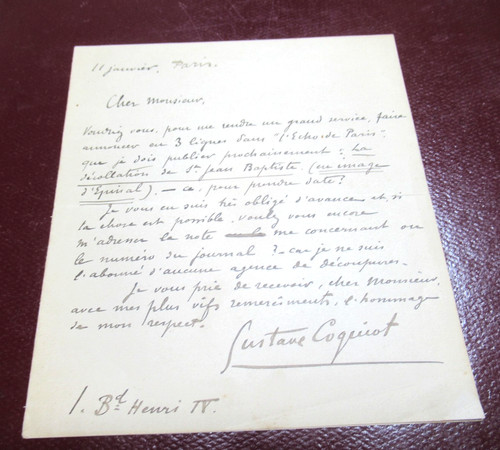 11 janvier. Paris.
Cher Monsieur,
Voudriez vous, pour me rendre un grand service, faire
annoncer en 3 lignes dans "l'Echo de Paris"
que je dois publier prochainement: La
décollation de St Jean Baptiste. (une image
d'Epinal). — ce, pour prendre date?
Je vous en suis très obligé d'avance et, si
la chose est possible, voulez vous encore
m'adresser la note me concernant ou
le numéro du journal? — car je ne suis
l'abonné d'aucune agence de découpures.
Je vous prie de recevoir, cher Monsieur,
avec mes plus vifs remerciements, l'hommage
de mon respect.
Gustave Coquiot
1. Bd Henri IV.